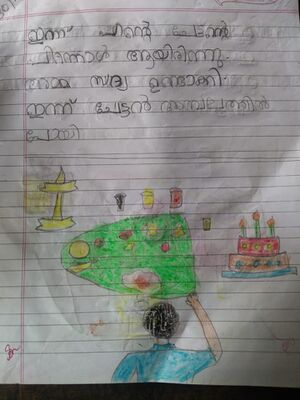 ഇന്ന് എന്റെ ചേട്ടന്റെ
പിറന്നാൾ ആയിരിന്നു.
അമ്മ സദ്യ ഉണ്ടാക്കി.
ഇന്ന് ചേട്ടൻ അമ്പലത്തിൽ
പോയി